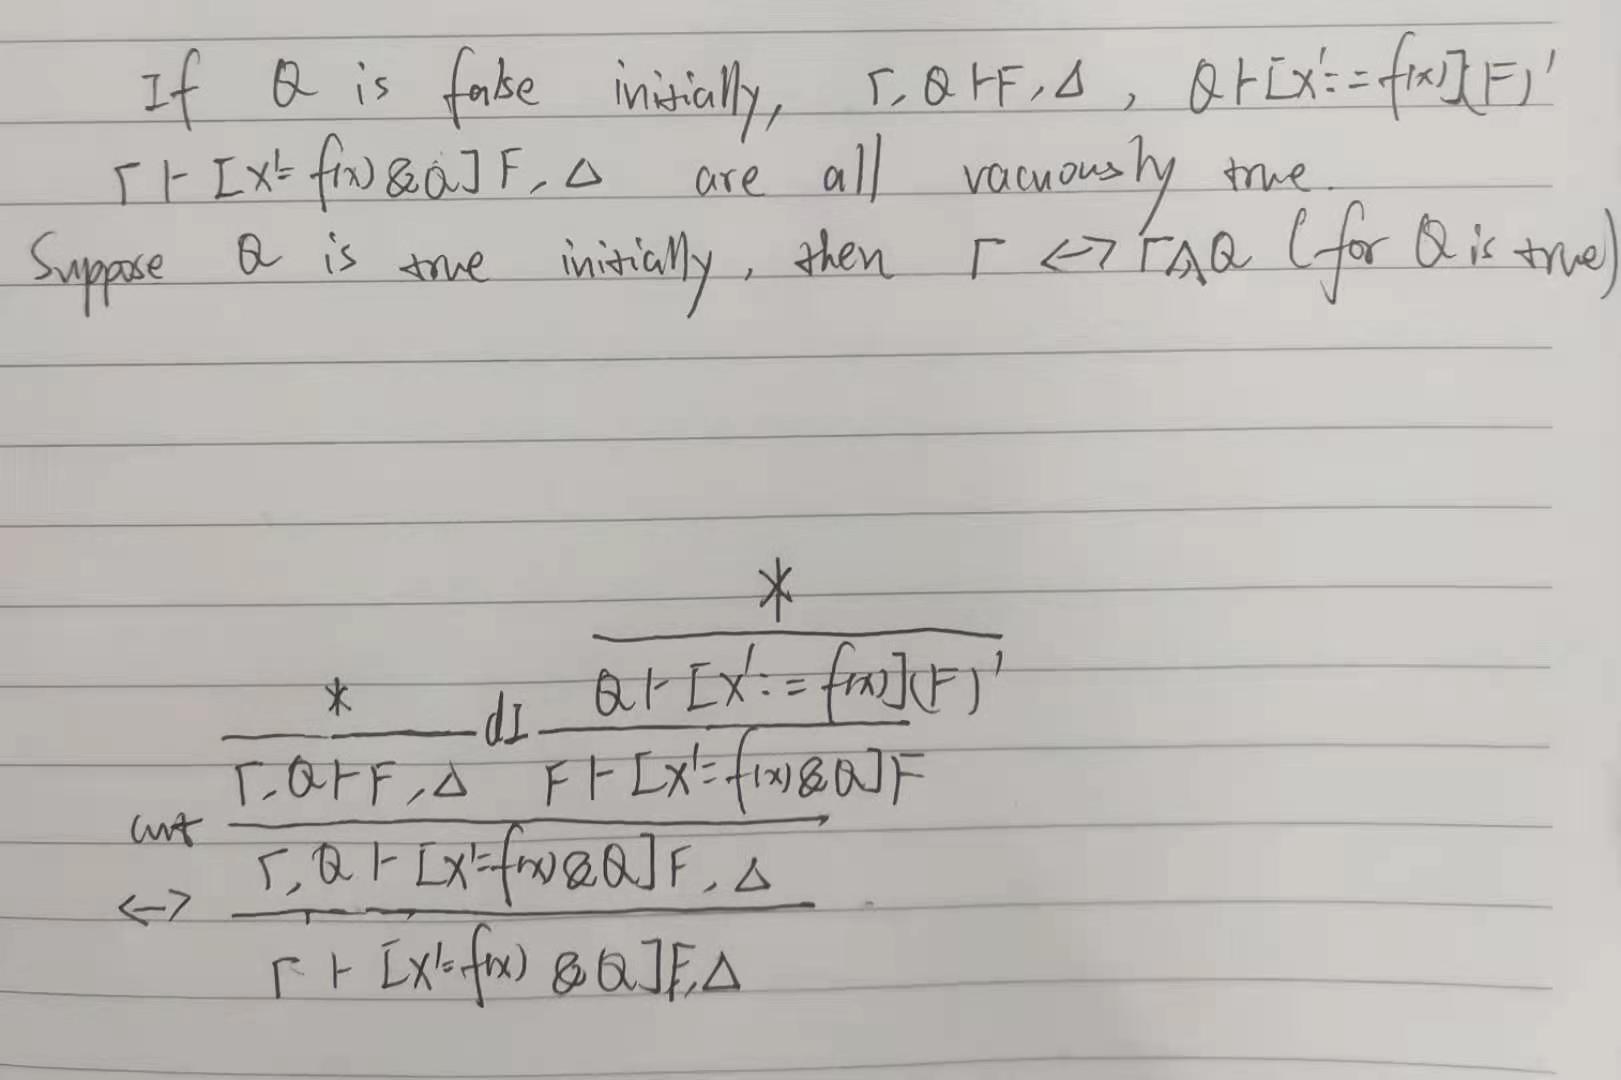 If Q is false initially, Γ, Q ⊢ F, Δ, Q ⊢ [x' := f(x)](F)'
Γ ⊢ [x' = f(x) & Q] F, Δ are all vacuously true.
Suppose Q is true initially, then Γ <-> Γ ∧ Q (for Q is true)
*
Q ⊢ [x' := f(x)](F)'
* dI
Γ, Q ⊢ F, Δ F ⊢ [x' = f(x) & Q] F
cut
Γ, Q ⊢ [x' = f(x) & Q] F, Δ
<->
Γ ⊢ [x' = f(x) & Q] F, Δ